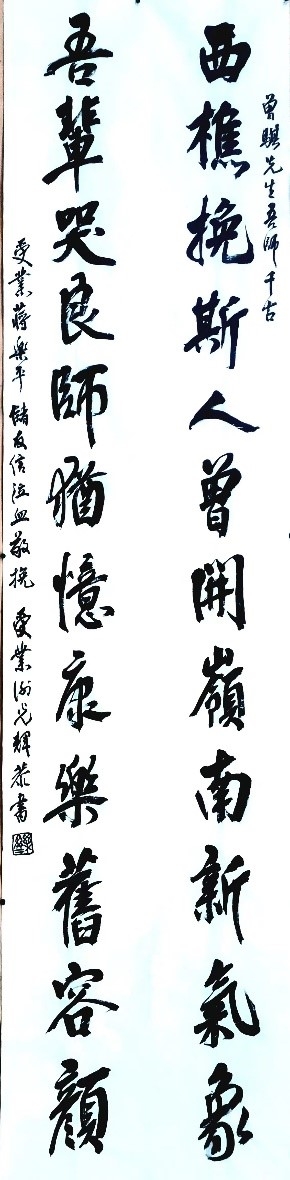 曾騏先生吾師千古
西樵挽斯人曾開嶺南新氣象
吾輩哭良師猶憶康樂舊容顏
受業蔣樂平 儲友信泣血敬挽 受業謝光輝恭書